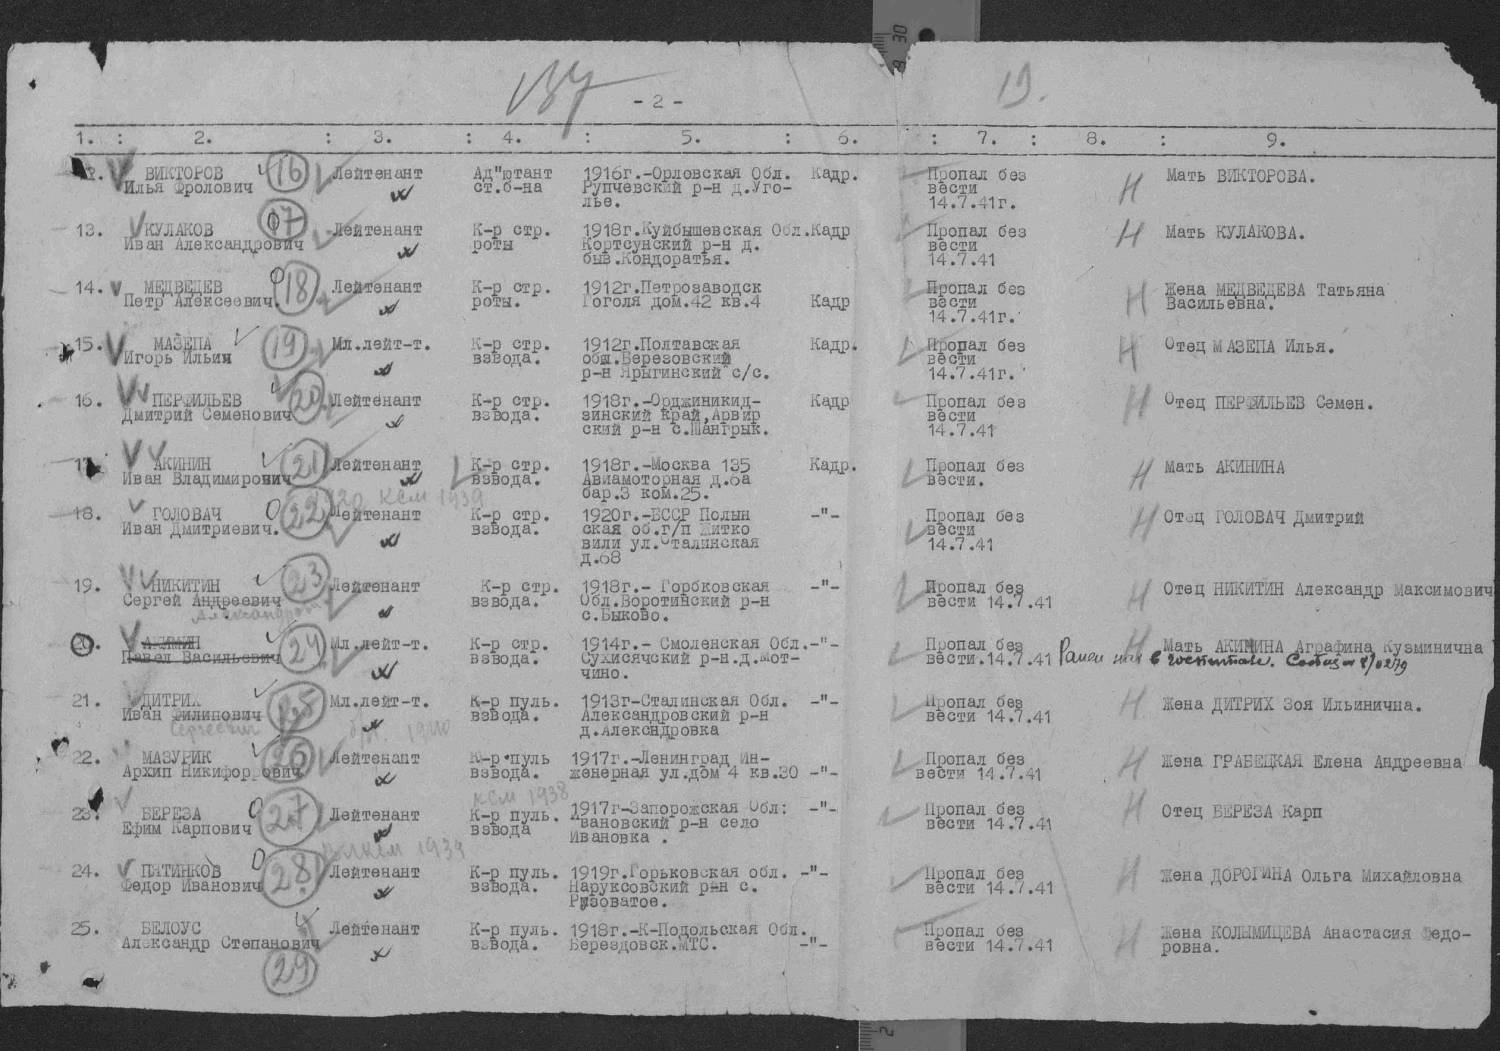 137
- 2 -
19.
1. : 2. : 3. : 4. : 5. : 6. : 7. : 8. : 9.
ВИКТОРОВ 16 Лейтенант Ад"ютант 1916г.-Орловская Обл. Кадр. Пропал без Н Мать ВИКТОРОВА.
Илья Фролович ст.б-на Рупчевский р-н д.Уго- вести
лье. 14.7.41г.
13. КУЛАКОВ 17 Лейтенант К-р стр. 1918г.Куйбышевская Обл.Кадр Пропал без Н Мать КУЛАКОВА.
Иван Александрович роты Кортсунский р-н д. вести
быв.Кондоратья. 14.7.41
14. МЕДВЕДЕВ 18 Лейтенант К-р стр. 1912г.Петрозаводск Пропал без Н Жена МЕДВЕДЕВА Татьяна
Петр Алексеевич. роты. Гоголя дом.42 кв.4 Кадр вести Васильевна.
14.7.41г.
15. МАЗЕПА 19 Мл.лейт-т. К-р стр. 1912г.Полтавская Кадр. Пропал без Н Отец МАЗЕПА Илья.
Игорь Ильич взвода. обл.Березовский вести
р-н Ярыгинский с/с. 14.7.41г.
16. ПЕРФИЛЬЕВ 20 Лейтенант К-р стр. 1918г.-Орджиникид- Кадр Пропал без Н Отец ПЕРФИЛЬЕВ Семен.
Дмитрий Семенович взвода. зинский край,Арвир вести
ский р-н с.Шангрык. 14.7.41
17. АКИНИН 21 Лейтенант К-р стр. 1918г.-Москва 135 Кадр. Пропал без Н Мать АКИНИНА
Иван Владимирович взвода. Авиамоторная д.6а вести.
бар.3 ком.25.
1920 ксм 1939
18. ГОЛОВАЧ 22 Лейтенант К-р стр. 1920г.-БССР Полын -"- Пропал без Н Отец ГОЛОВАЧ Дмитрий
Иван Дмитриевич. взвода. ская об.г/п Житко вести
вили ул.Сталинская 14.7.41
д.68
19. НИКИТИН 23 Лейтенант К-р стр. 1918г.- Горбковская -"- Пропал без Н Отец НИКИТИН Александр Максимович
Сергей Андреевич взвода. Обл.Воротинский р-н вести 14.7.41
Александров с.Быково.
20. АКИМИН 24 Мл.лейт-т. К-р стр. 1914г.- Смоленская Обл.-"- Пропал без Н Мать АКИМИНА Аграфина Кузминична
Павел Васильевич взвода. Сухисячский р-н.д.Мот- вести.14.7.41 Ранен в госпитале.
чино.
21. ДИТРИХ 25 Мл.лейт-т. К-р пуль. 1913г-Сталинская Обл. -"- Пропал без Н Жена ДИТРИХ Зоя Ильинична.
Иван Филипович взвода. Александровский р-н вести 14.7.41
Сергеевич 1940 д.Алексндровка
22. МАЗУРИК 26 Лейтенант К-р пуль 1917г.-Ленинград Ин- Пропал без Н Жена ГРАБЕЦКАЯ Елена Андреевна
Архип Никифорович взвода. женерная ул.дом 4 кв.30 -"- вести 14.7.41
ксм 1938
23. БЕРЕЗА 27 Лейтенант К-р пуль. 1917г-Запорожская Обл: -"- Пропал без Н Отец БЕРЕЗА Карп
Ефим Карпович взвода Ивановский р-н село вести 14.7.41
Ивановка .
влксм 1939
24. ПЯТИНКОВ 28 Лейтенант К-р пуль. 1919г.Горьковская обл. -"- Пропал без Н Жена ДОРОГИНА Ольга Михайловна
Федор Иванович взвода. Наруксовский р-н с. вести 14.7.41
Рузоватое.
25. БЕЛОУС Лейтенант К-р пуль. 1918г.-К-Подольская Обл. Пропал без Н Жена КОЛЫМИЦЕВА Анастасия Федо-
Александр Степанович взвода. Берездовск.МТС. -"- вести 14.7.41 ровна.
29